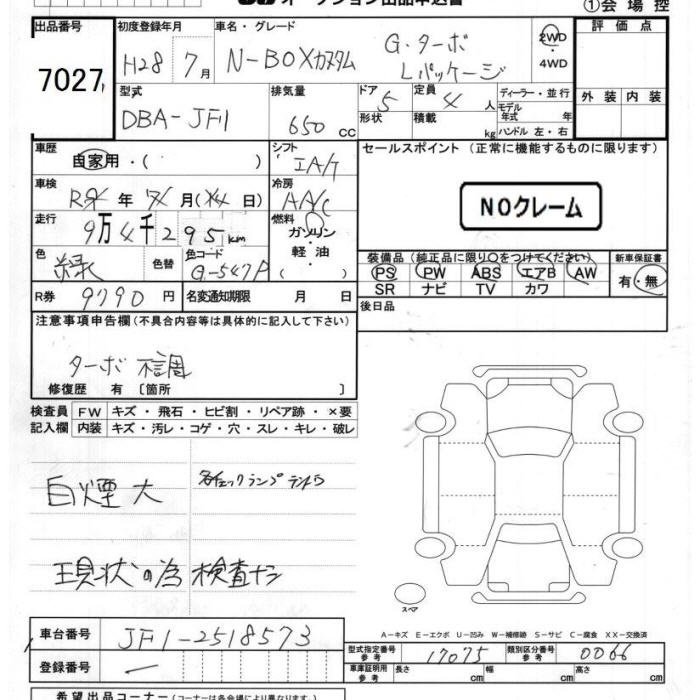 オークション出品申込書 ①会場控
出品番号 初度登録年月 車名・グレード 評価点
7027 H28 7月 N-BOXカスタム G・ターボ Lパッケージ 2WD・4WD
型式 排気量 ドア 定員 ディーラー・並行 外装 内装
DBA-JF1 650cc 5 4人 モデル年式 年
形状 積載 kg ハンドル 左・右
車歴 自家用・( ) シフト IA/T セールスポイント (正常に機能するものに限ります)
車検 年 月( 日) 冷房 A/C NOクレーム
走行 9万4千295km 燃料 ガソリン・軽油
色 緑 色替 色コード G-547P 装備品 (純正品に限り○をつけてください) 新車保証書
PS PW ABS エアB AW 有・無
SR ナビ TV カワ
R券 9790円 名変通知期限 月 日 後日品
注意事項申告欄 (不具合内容等は具体的に記入して下さい)
ターボ 不調
修復歴 有〔箇所 〕
検査員 FW キズ・飛石・ヒビ割・リペア跡・×要
記入欄 内装 キズ・汚レ・コゲ・穴・スレ・キレ・破レ
白煙大 各チェックランプ テントウ
現状の為 検査ナシ
スペア
A-キズ E-エクボ U-凹み W-補修跡 S-サビ C-腐食 XX-交換済
車台番号 JF1-2518573 型式指定番号 参考 17075 類別区分番号 参考 0066
登録番号 車庫証明用 参考 長さ cm 幅 cm 高さ cm
希望出品コーナー (コースは各会場により異なります)